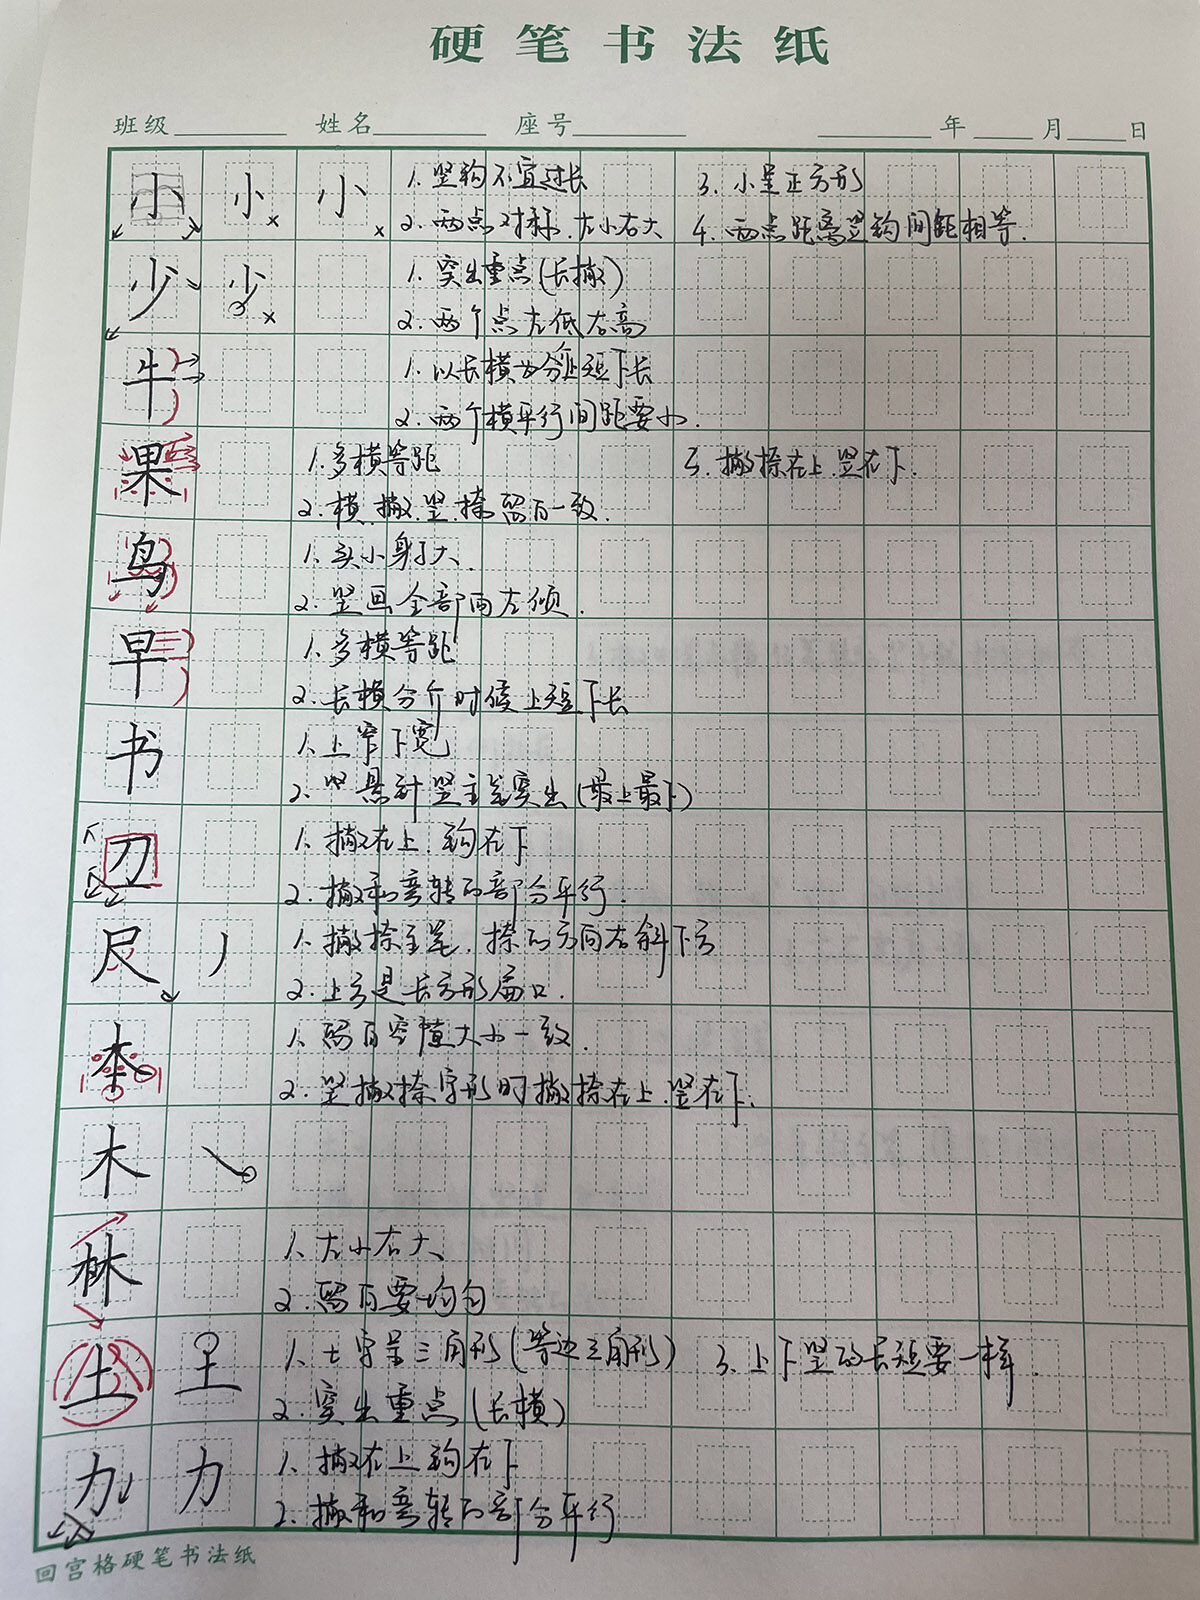 硬笔书法纸
班级 姓名 座号 年 月 日
小 小 小 1. 竖钩不宜过长 3. 小呈正方形
2. 两点对称.左小右大 4. 两点距离竖钩间距相等.
少 少 1. 突出重点(长撇)
2. 两个点左低右高
牛 1. 以长横为分上短下长
2. 两个横平行间距要小.
果 1. 多横等距 3. 撇捺在上.竖在下.
2. 横.撇.竖.捺留白一致.
鸟 1. 头小身子大.
2. 竖画全部向左倾.
早 1. 多横等距
2. 长横分介时候上短下长
书 1. 上窄下宽
2. 竖悬针竖主笔突出(最上最下)
刀 1. 撇在上.钩在下
2. 撇和弯转的部分平行.
尺 丿 1. 撇捺主笔.捺的方向右斜下方
2. 上方是长方形扁口.
本 1. 留白空隙大小一致.
2. 竖撇捺字形时撇捺在上.竖在下.
木 ㇏
林 1. 左小右大
2. 留白要均匀
土 王 1. 土字呈三角形(等边三角形) 3. 上下竖的长短要一样.
2. 突出重点(长横)
力 力 1. 撇在上钩在下
2. 撇和弯转的部分平行
回宫格硬笔书法纸